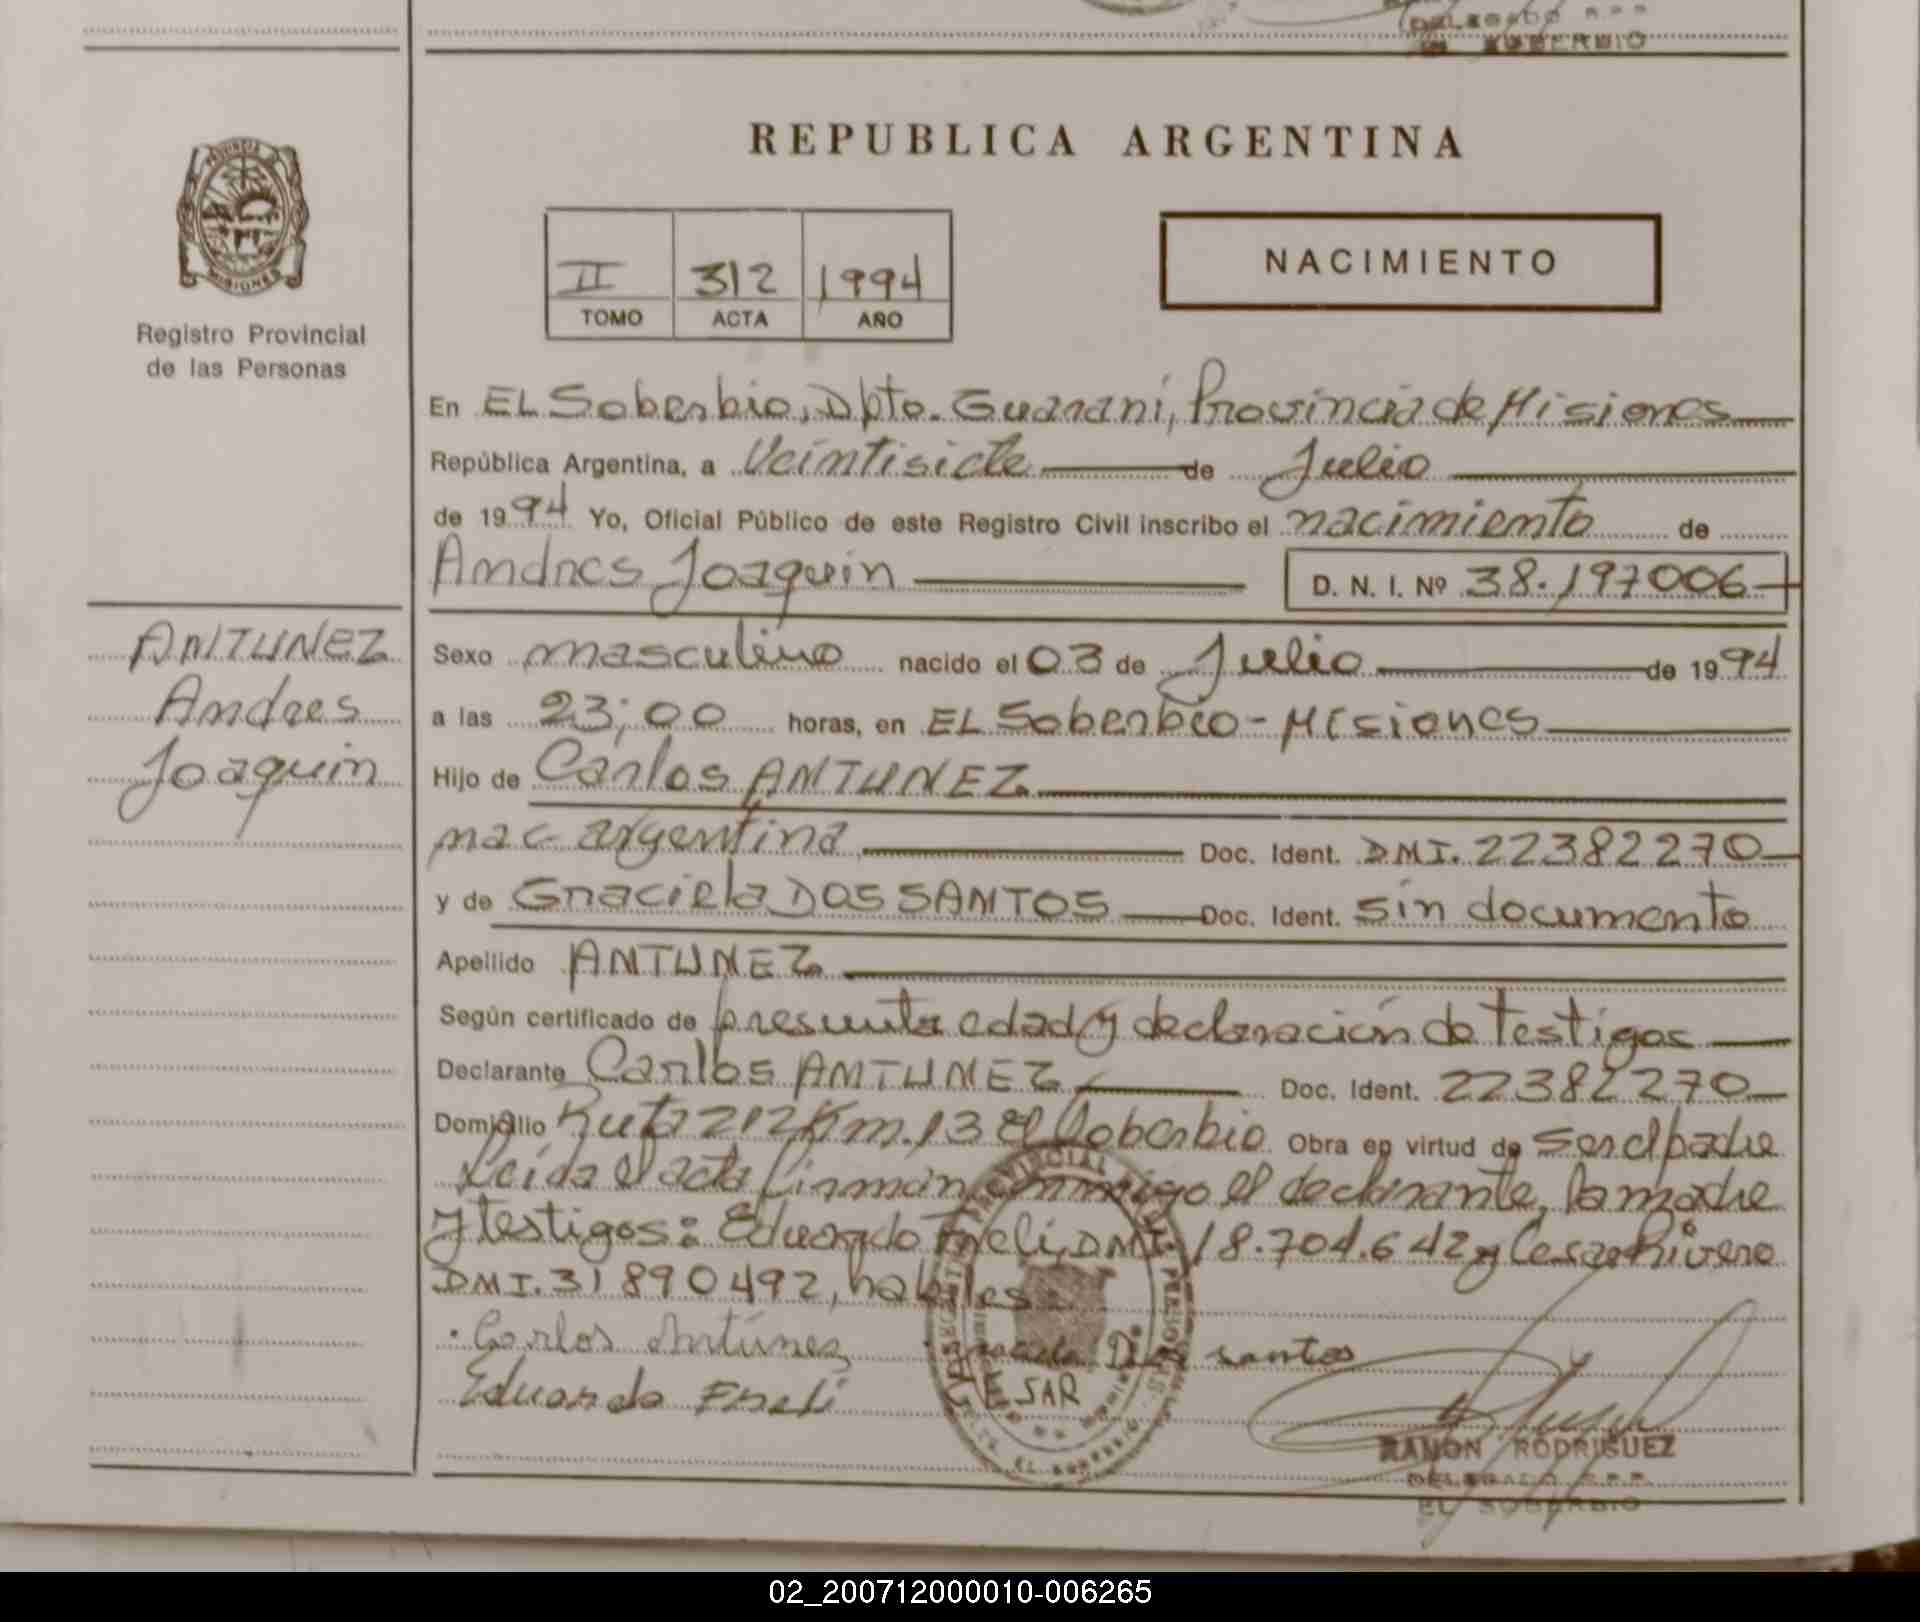 DELEGADO R.P.P.
EL SOBERBIO
REPUBLICA ARGENTINA
PROVINCIA DE
MISIONES
Registro Provincial
de las Personas
II 312 1994
TOMO ACTA AÑO
NACIMIENTO
En EL Soberbio, Dpto. Guarani, Provincia de Misiones
República Argentina, a Veintisiete de Julio
de 1994 Yo, Oficial Público de este Registro Civil inscribo el nacimiento de
Andres Joaquin D. N. I. Nº 38.197006
ANTUNEZ
Andres
Joaquin
Sexo masculino nacido el 03 de Julio de 1994
a las 23;00 horas, en EL Soberbio - Misiones
Hijo de Carlos ANTUNEZ
nac argentina Doc. Ident. DNI. 22382270
y de Graciela DOS SANTOS Doc. Ident. sin documento
Apellido ANTUNEZ
Según certificado de presunta edad y declaración de Testigos
Declarante Carlos ANTUNEZ Doc. Ident. 22382270
Domicilio Ruta 212 Km. 13 El Soberbio Obra en virtud de Ser el padre
Leída el acta firman conmigo el declarante, la madre
y testigos: Eduardo DNI. 18.704.642 y Cesar Rivero
DNI. 31890492, habiles.
Carlos Antúnez Graciela Dos santos
Eduardo
CESAR
RAMON RODRIGUEZ
DELEGADO R.P.P.
EL SOBERBIO
02_200712000010-006265